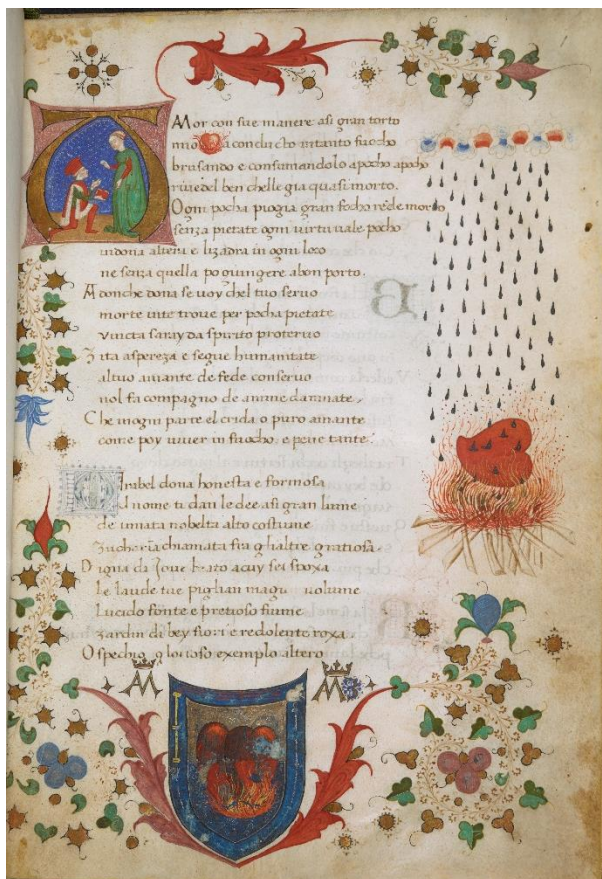 AMor con sue manere asi gran torto
mio a conducto intanto fuocho
brusando e consumandolo apocho apocho
riuedel ben chelle gia quasi morto.
Ogni pocha piogia gran focho rede morto
senza pietate ogni uirtu uale pocho
indona altera e lizadra in ogni loco
ne senza quella po giungere abon porto.
Adonche dona se uoy chel tuo seruo
morte uite troue per pocha pietate
uincta da spirito proteruo
Zita aspereza e segue humanitate
altuo amante de fede conseruo
nol fa compagno de anime damnate.
Che inogni parte el crida o puro amante
come poy uiuer in fuocho e pene tante.
Mirabel dona honesta e formosa
el nome ti dan le dee asi gran lume
de innata nobelta alto costume
Zucheria chiamata fra ghaltre gratiosa.
Digna di Joue beato acuy sei spoxa
le laude tue piglian magn uolume
Lucido fonte e pretioso fiume
zardin di bey fiori e redolente roxa.
O spechio glorioso exemplo altero
M M